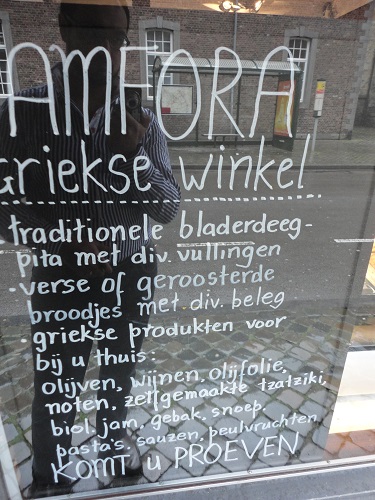 AMFORA
Griekse winkel
traditionele bladerdeeg-
pita met div. vullingen
·verse of geroosterde
broodjes met div. beleg
griekse produkten voor
bij u thuis:
olijven, wijnen, olijfolie,
noten, zelfgemaakte tzatziki,
biol. jam, gebak, snoep.
pasta's, sauzen, peulvruchten
KOMT u PROEVEN